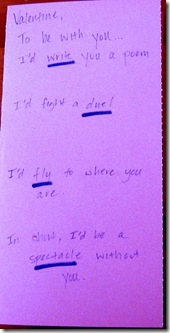 Valentine,
To be with you...
I'd write you a poem
I'd fight a duel
I'd fly to where you
are.
In short, I'd be a
spectacle without
you.